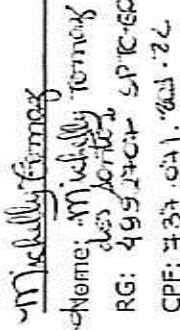 Michelly Tomaz
Nome: Michelly Tomaz
dos Santos
RG: 4992707 SPTC-GO
CPF: 737.071.